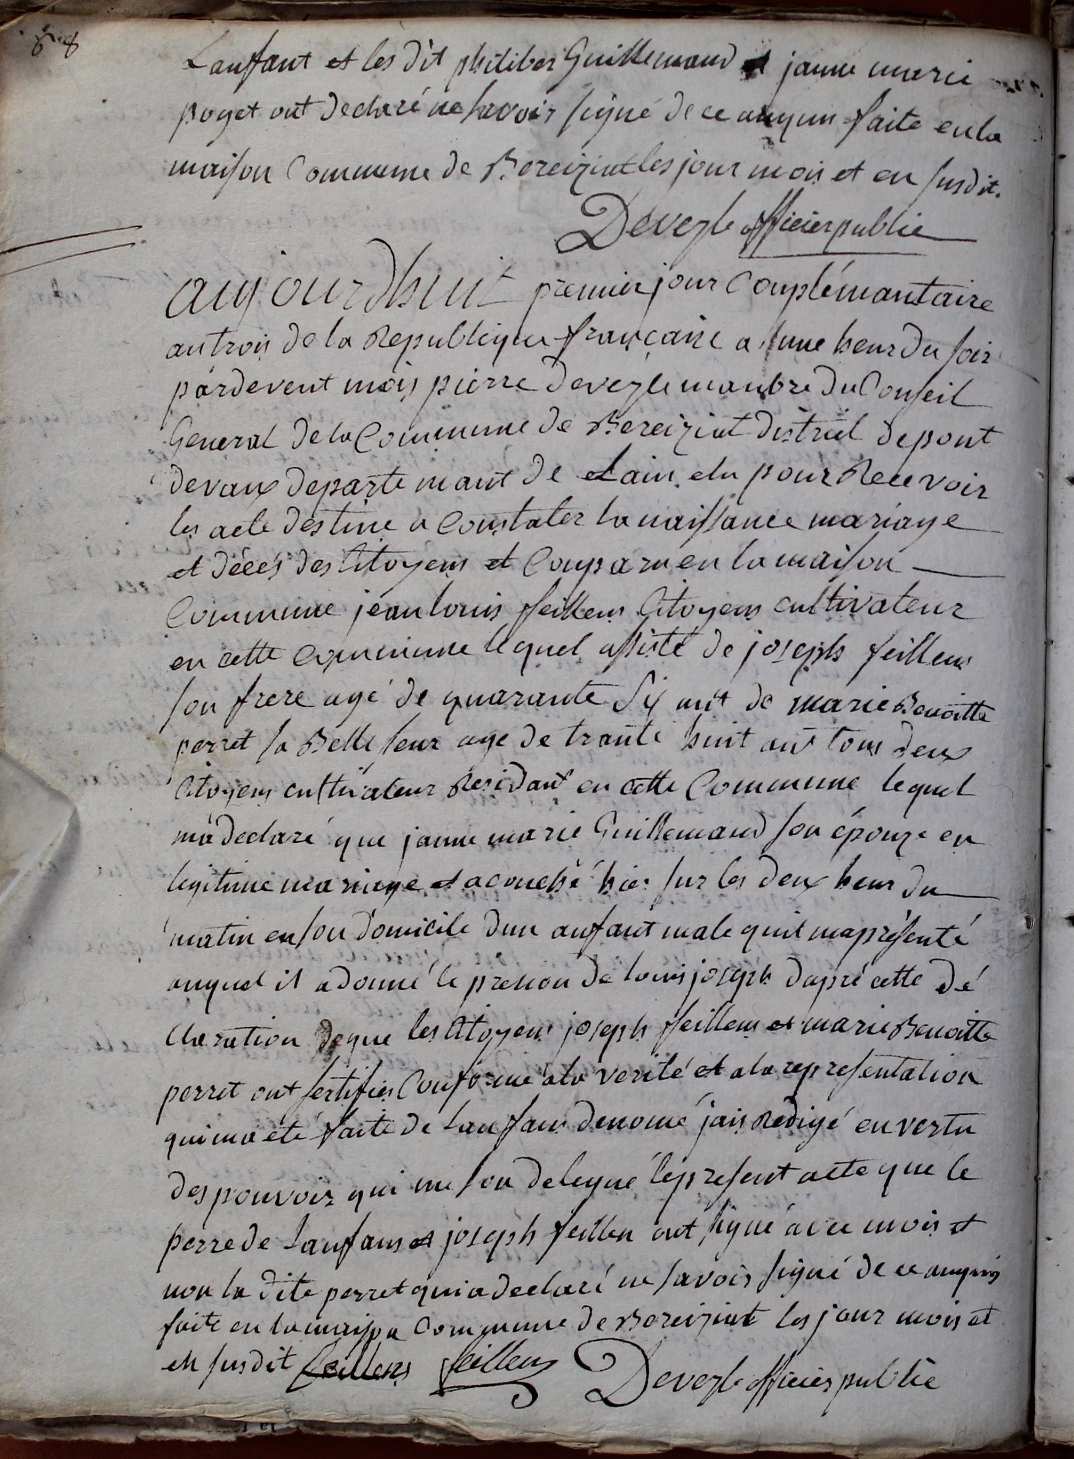 88
Lanfant et les dit philiber Guillemaud et janne marie
poget ont declaré ne savoir signé de ce anquis faite en la
maison Commune de Bereiziat les jour mois et en susdit.
Devezle officier public
aujourdhuit premier jour Complémantaire
an trois de la Republique française a une heur du soir
pardevent mois pierre devezle manbre du Conseil
General de la Commune de Bereiziat distriel de pont
devaux departemant de Lain elu pour Recevoir
les acte destine a Constater la naissance mariage
et décés des Citoyens et Conparu en la maison
Commune jean louis feillens Citoyens cultivateur
en cette Commune lequel assisté de joseph feillens
son frere agé de quarante six ant de marie Benoitte
perret sa Belle seur age de trante huit ant tous deux
Citoyens cultivateur Residant en cette Commune lequel
ma declaré que janne marie Guillemaud son épouze en
legitime mariage et acouché hier sur les deux heur du
matin en son domicile dun anfant male quil ma présenté
auquel il a donné le prenon de louis joseph dapré cette dé
claration que les Citoyens joseph feillens et marie Benoitte
perret ont sertifies Conforme a la verité et a la representation
qui ma été faite de Lanfan denomé jais Redigé en vertu
des pouvoir qui me son delegué le present acte que le
perre de Lanfans et joseph feillen ont signé avec mois et
non la dite perret qui a declaré ne savoir signé de ce anquis
faite en la maison Commune de Bereiziat les jour mois et
en susdit feillens feillens Devezle officier public